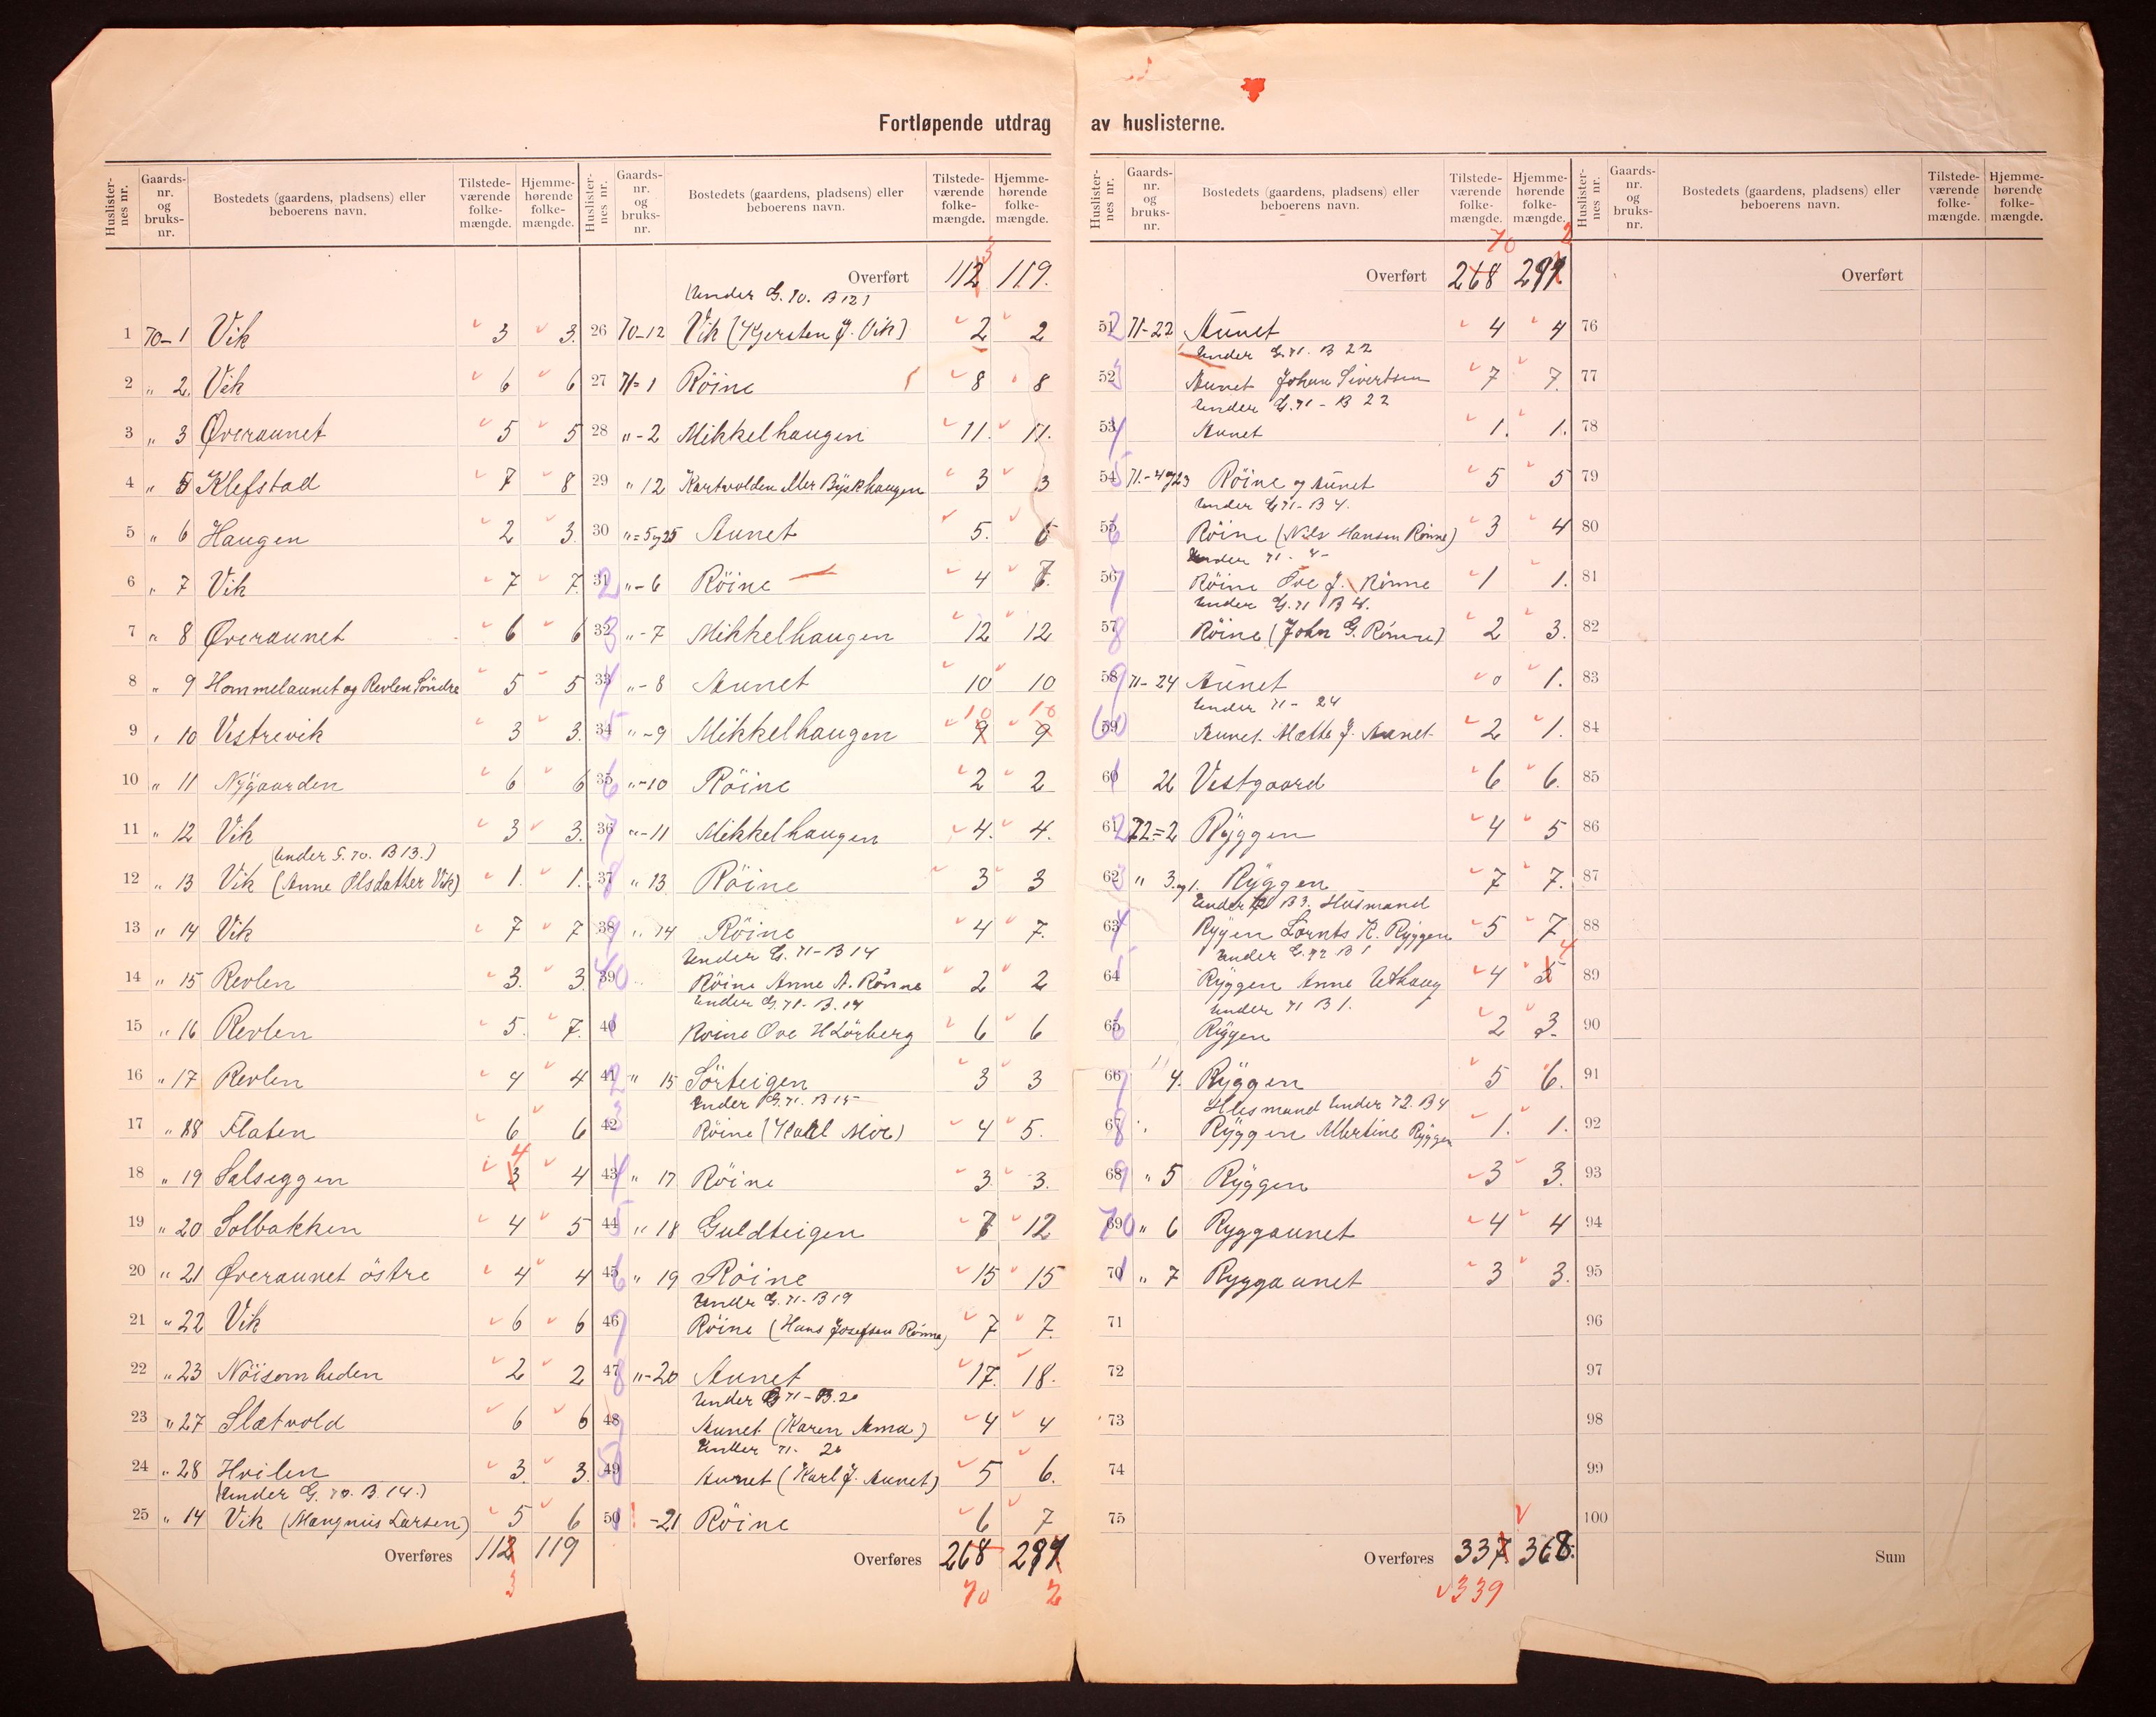 Fortløpende utdrag av huslisterne.
Huslister-nes nr. Gaards-nr. og bruks-nr. Bostedets (gaardens, pladsens) eller beboerens navn. Tilstede-værende folke-mængde. Hjemme-hørende folke-mængde.
1 70-1 Vik 3 3.
2 " 2 Vik 6 6
3 " 3 Överaunet 5 5
4 " 5 Klefstad 7 8
5 " 6 Haugen 2 3.
6 " 7 Vik 7 7.
7 " 8 Överaunet 6 6
8 " 9 Hommelaunet og Revlen Söndre 5 5
9 " 10 Vestrevik 3 3.
10 " 11 Nÿgaarden 6 6
11 " 12 Vik 3 3.
(Under G. 70. B 13.)
12 " 13 Vik (Anne Olsdatter Vik) 1. 1.
13 " 14 Vik 7 7
14 " 15 Revlen 3. 3.
15 " 16 Revlen 5. 7.
16 " 17 Revlen 4 4
17 " 18 Flaten 6 6
18 " 19 Salseggen 3 4 4
19 " 20 Solbakken 4 5
20 " 21 Överaunet östre 4 4
21 " 22 Vik 6 6
22 " 23 Nöisomheden 2 2
23 " 27 Slætvold 6 6
24 " 28 Hvilen 3. 3.
(Under G. 70. B. 14.)
25 " 14 Vik (Mangnus Larsen) 5 6
Overføres 112 119
3
Huslister-nes nr. Gaards-nr. og bruks-nr. Bostedets (gaardens, pladsens) eller beboerens navn. Tilstede-værende folke-mængde. Hjemme-hørende folke-mængde.
Overført 112 3 119.
(Under G. 70. B 12)
26 70-12 Vik (Kjersten J. Vik) 2 2
27 71=1 Röine 8 8
28 "-2 Mikkelhaugen 11. 11.
29 " 12 Kartvolden eller Býskhaugen 3 3
30 "=5 og 25 Aunet 5. 6
31 2 "-6 Röine 4 7.
32 3 "-7 Mikkelhaugen 12 12
33 4 "-8 Aunet 10 10
34 5 "-9 Mikkelhaugen 9 10 9 10
35 6 "-10 Röine 2 2
36 7 "-11 Mikkelhaugen 4. 4.
37 8 " 13 Röine 3 3
38 9 " 14 Röine 4 7.
Under G. 71-B 14
39 40 Röine Anne A. Rönne 2 2
Under G. 71. B. 14
40 1 Röine Ove H Lörberg 6 6
41 2 " 15 Sörteigen 3 3
Under G. 71. B 15
42 3 Röine (Karl Moe) 4 5.
43 4 " 17 Röine 3. 3.
44 5 " 18 Guldteigen 7 12
45 6 " 19 Röine 15 15
Under G. 71-B 19
46 7 Röine (Hans Josefsen Rönne) 7 7.
47 8 "-20 Aunet 17. 18.
Under G 71-B. 20
48 9 Aunet (Karen Anna) 4 4
Under 71. 20
49 50 Aunet (Karl J. Aunet) 5 6.
50 1 -21 Röine 6 7
Overføres 268 291
70 2
Huslister-nes nr. Gaards-nr. og bruks-nr. Bostedets (gaardens, pladsens) eller beboerens navn. Tilstede-værende folke-mængde. Hjemme-hørende folke-mængde.
70 2
Overført 268 291
51 2 71-22 Aunet 4 4
Under G. 71. B 22
52 3 Aunet Johan Sivertsen 7 7.
Under G. 71 - B 22
53 4 Aunet 1. 1.
54 5 71.-4 og 23 Röine og Aunet 5 5
Under G 71-B 4.
55 6 Röine (Nils Hansen Rönne) 3 4
Under 71 - 4-
56 7 Röine Ove J. Rönne 1 1.
Under G. 71 B 4.
57 8 Röine (John G. Rönne) 2 3.
58 9 71-24 Aunet 0 1.
Under 71- 24
59 60 Aunet Mætte J. Aunet 2 1.
60 1 26 Vestgaard 6 6.
61 2 72=2 Rÿggen 4 5
62 3 " 3. og 1. Rÿggen 7 7.
Under 72 B 3. Husmand
63 4 Ryggen Lornts K. Ryggen 5 7
Under G. 72 B 1
64 5 Rÿggen Anne Uthaug 4 4
Under 71 B 1.
65 6 Rÿggen 2 3.
66 7 " 4. Rÿggen 5 6.
Husmand Under 72. B 4
67 8 " Rÿggen Albertine Rÿggen 1. 1.
68 9 " 5 Rÿggen 3 3.
69 70 " 6 Ryggaunet 4 4
70 1 " 7 Ryggaunet 3 3.
71
72
73
74
75
Overføres 337 368.
339
Huslister-nes nr. Gaards-nr. og bruks-nr. Bostedets (gaardens, pladsens) eller beboerens navn. Tilstede-værende folke-mængde. Hjemme-hørende folke-mængde.
Overført
76
77
78
79
80
81
82
83
84
85
86
87
88
89
90
91
92
93
94
95
96
97
98
99
100
Sum